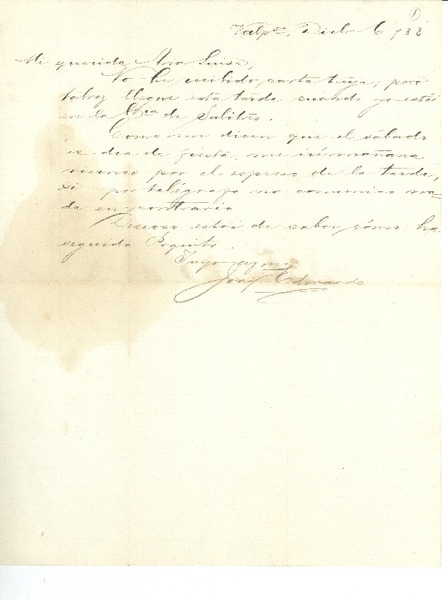 Valpo. Dicbre 6 / 88
Mi querida Ana Luisa,
No he recibido carta tuya; pero
talvez llegue esta tarde cuando yo esté
en la de Salitre.
Como me dicen que el sábado
es dia de fiesta, me iré mañana
viernes por el espreso de la tarde,
si por telégrafo no comunico na-
da en contrario
Deseoso estoi de saber cómo ha
seguido
Tuyo
José Eduardo